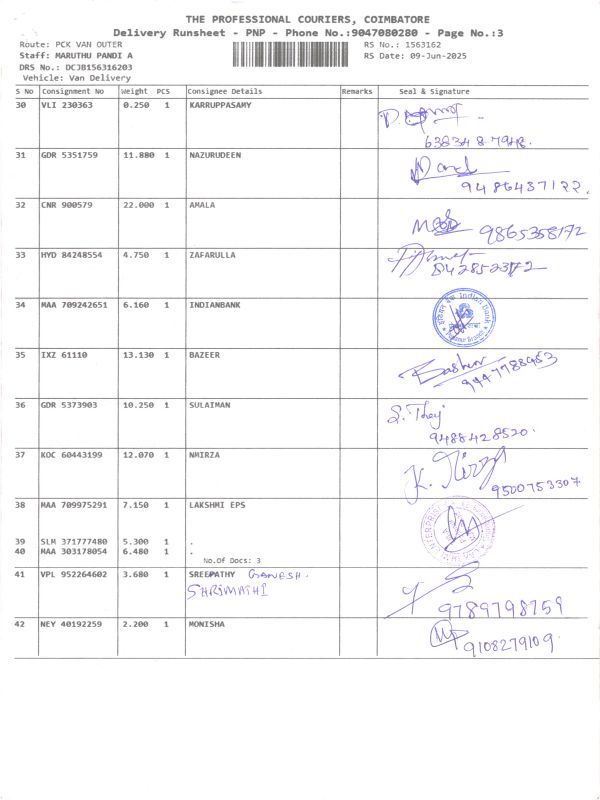 THE PROFESSIONAL COURIERS, COIMBATORE
Delivery Runsheet - PNP - Phone No.:9047080280 - Page No.:3
Route: PCK VAN OUTER RS No.: 1563162
Staff: MARUTHU PANDI A RS Date: 09-Jun-2025
DRS No.: DCJB156316203
Vehicle: Van Delivery
S No Consignment No Weight PCS Consignee Details Remarks Seal & Signature
30 VLI 230363 0.250 1 KARRUPPASAMY
31 GDR 5351759 11.880 1 NAZURUDEEN
9486437122.
32 CNR 900579 22.000 1 AMALA
9865358172
33 HYD 84248554 4.750 1 ZAFARULLA
34 MAA 709242651 6.160 1 INDIANBANK
Indian Bank
35 IXZ 61110 13.130 1 BAZEER
Basheer
9447788953
36 GDR 5373903 10.250 1 SULAIMAN
9488428520.
37 KOC 60443199 12.070 1 NMIRZA
K. Mirza
9500753307
38 MAA 709975291 7.150 1 LAKSHMI EPS
39 SLM 371777480 5.300 1 .
40 MAA 303178054 6.480 1 .
No.Of Docs: 3
41 VPL 952264602 3.680 1 SREEPATHY GANESH.
SHRIMATHI
9789798759
42 NEY 40192259 2.200 1 MONISHA
9108279109.